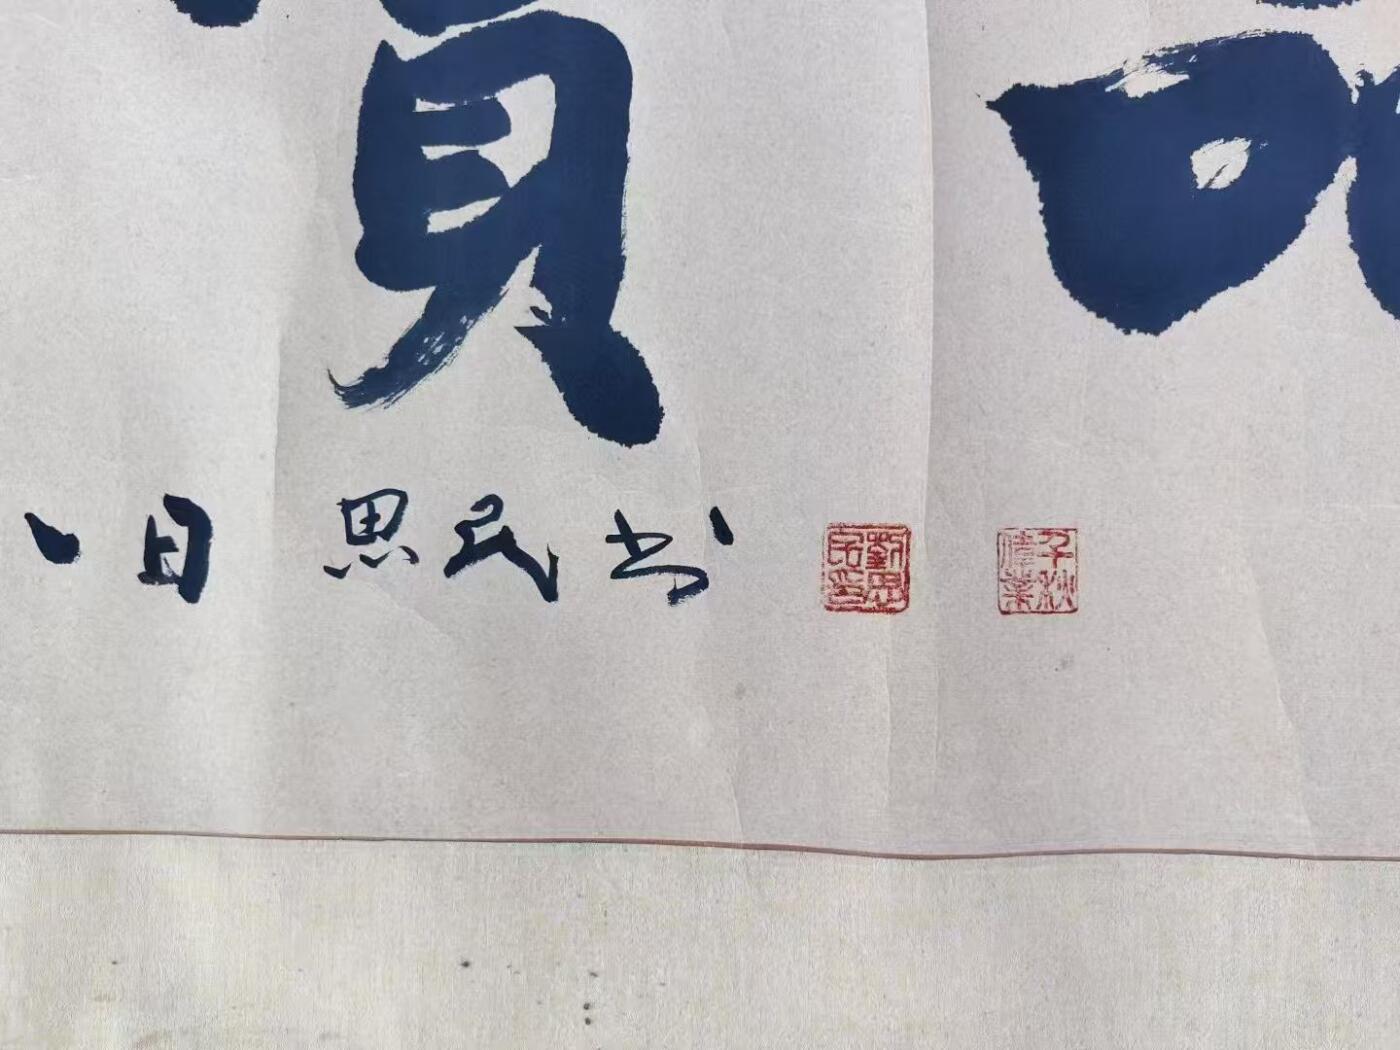 日 思民书
劉思民印
千秋偉業